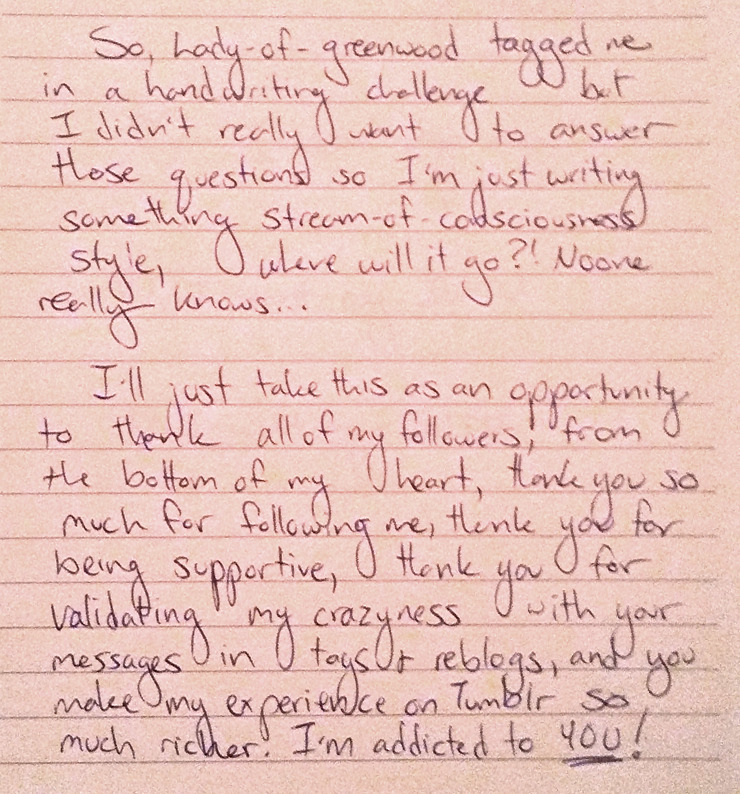 So, Lady-of-greenwood tagged me
in a handwriting challenge but
I didn't really want to answer
those questions so I'm just writing
something stream-of-consciousness
style, where will it go?! Noone
really knows...
I'll just take this as an opportunity
to thank all of my followers, from
the bottom of my heart, thank you so
much for following me, thank you for
being supportive, thank you for
validating my crazyness with your
messages in tags & reblogs, and you
make my experience on Tumblr so
much richer. I'm addicted to YOU!